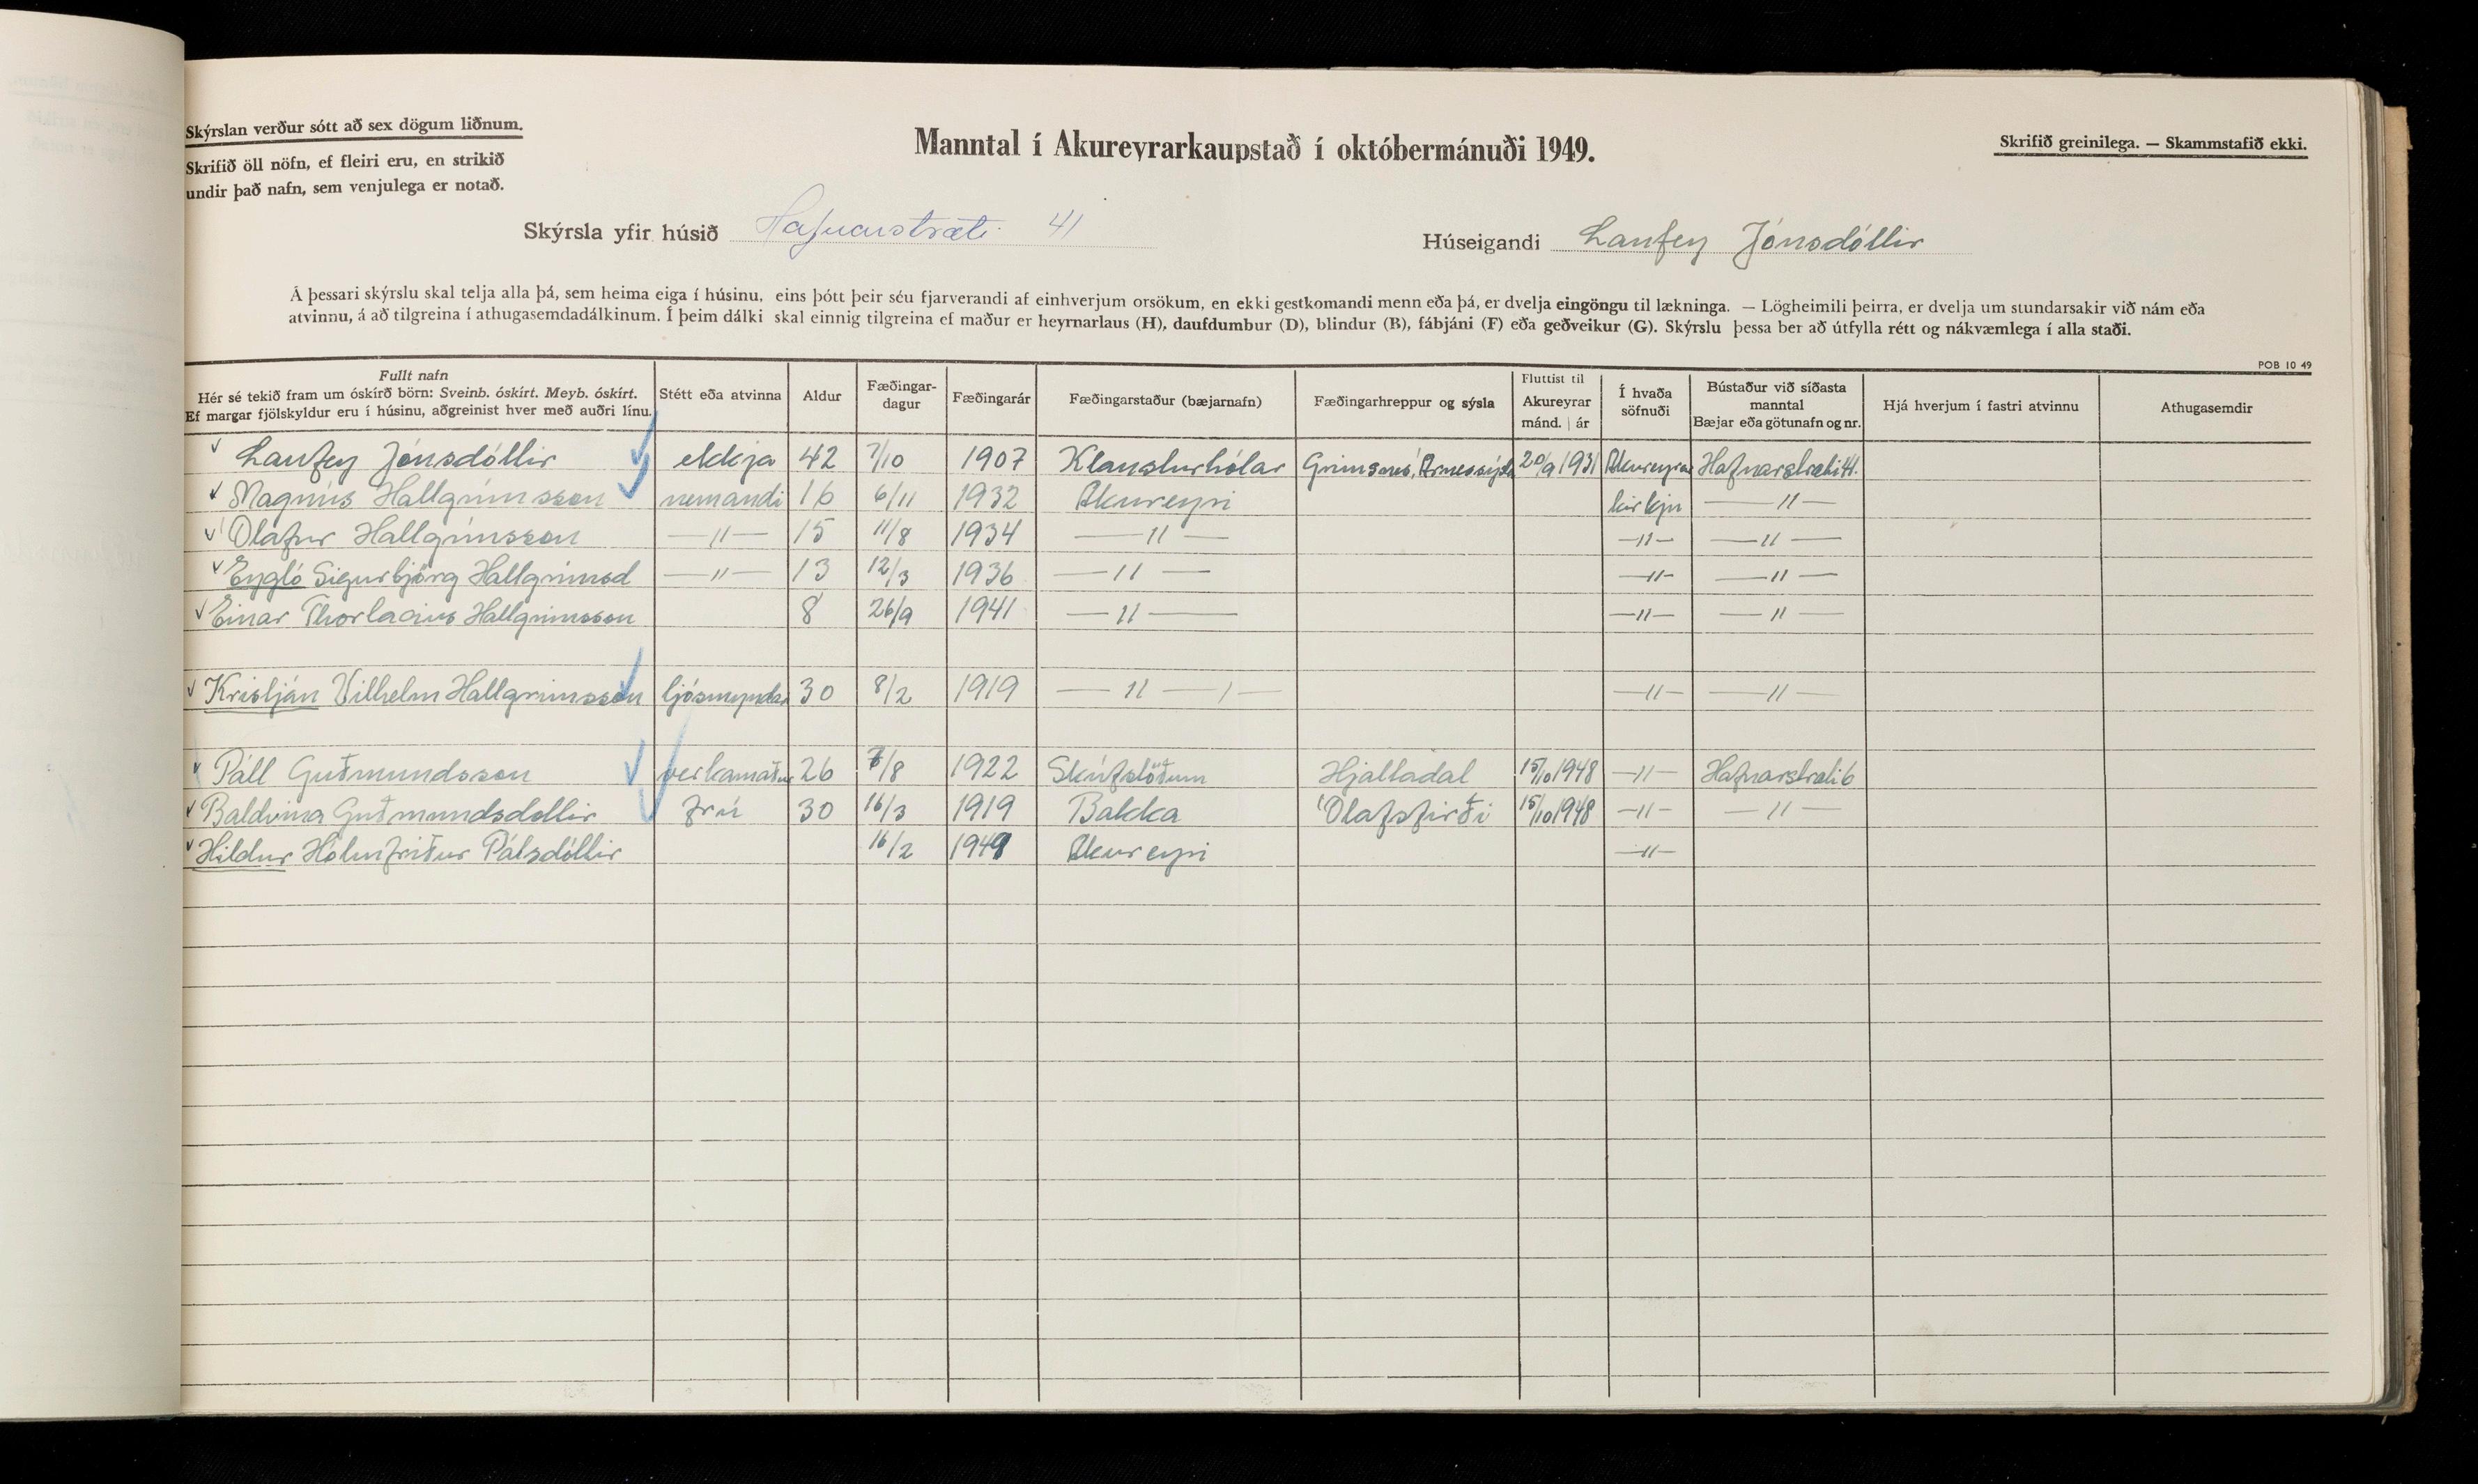 Skýrslan verður sótt að sex dögum liðnum.
Skrifið öll nöfn, ef fleiri eru, en strikið
undir það nafn, sem venjulega er notað.
Manntal í Akureyrarkaupstað í októbermánuði 1949.
Skrifið greinilega. — Skammstafið ekki.
Skýrsla yfir húsið Hafnarstræti 41
Húseigandi Laufey Jónsdóttir
Á þessari skýrslu skal telja alla þá, sem heima eiga í húsinu, eins þótt þeir séu fjarverandi af einhverjum orsökum, en ekki gestkomandi menn eða þá, er dvelja eingöngu til lækninga. — Lögheimili þeirra, er dvelja um stundarsakir við nám eða
atvinnu, á að tilgreina í athugasemdadálkinum. Í þeim dálki skal einnig tilgreina ef maður er heyrnarlaus (H), daufdumbur (D), blindur (B), fábjáni (F) eða geðveikur (G). Skýrslu þessa ber að útfylla rétt og nákvæmlega í alla staði.
POB 10 49
Fullt nafn
Hér sé tekið fram um óskírð börn: Sveinb. óskírt. Meyb. óskírt.
Ef margar fjölskyldur eru í húsinu, aðgreinist hver með auðri línu.
Stétt eða atvinna
Aldur
Fæðingar-
dagur
Fæðingarár
Fæðingarstaður (bæjarnafn)
Fæðingarhreppur og sýsla
Fluttist til
Akureyrar
mánd. | ár
Í hvaða
söfnuði
Bústaður við síðasta
manntal
Bæjar eða götunafn og nr.
Hjá hverjum í fastri atvinnu
Athugasemdir
Laufey Jónsdóttir ekkja 42 7/10 1907 Klausturhólar Grímsnes, Árnessýsla 20/9 1931 Akureyrar Hafnarstræti 41.
Magnús Hallgrímsson nemandi 16 6/11 1932 Akureyri kirkju —〃—
Ólafur Hallgrímsson —〃— 15 11/8 1934 —〃— —〃— —〃—
Eygló Sigurbjörg Hallgrímsd —〃— 13 12/3 1936 —〃— —〃— —〃—
Einar Thorlacius Hallgrímsson 8 26/9 1941 —〃— —〃— —〃—
Kristján Vilhelm Hallgrímsson ljósmyndari 30 8/2 1919 —〃— —〃— —〃—
Páll Guðmundsson verkamaður 26 /8 1922 Skúfslöðum Hjaltadal 15/10 1948 —〃— Hafnarstræti 6
Baldvina Guðmundsdottir frú 30 16/3 1919 Bakka Ólafsfirði 15/10 1948 —〃— —〃—
Hildur Hólmfríður Pálsdóttir 16/2 1949 Akureyri —〃—